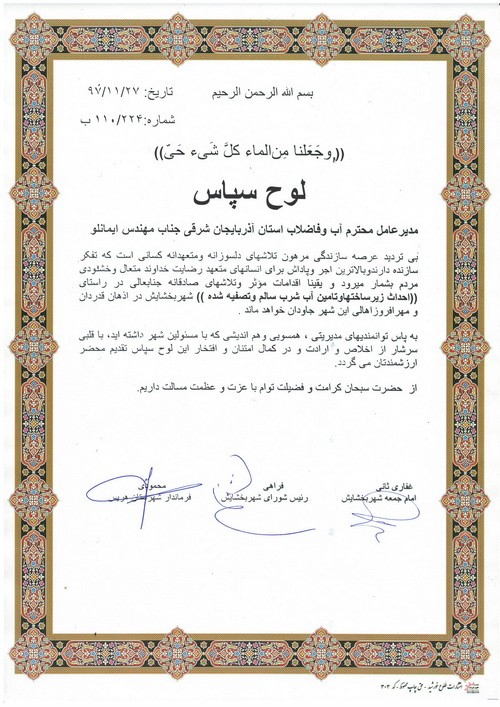 بسم الله الرحمن الرحیم
تاریخ: ۹۷/۱۱/۲۷
شماره: ۱۱۰/۲۲۴ ب
((وجَعَلنا مِن‌الماء کلَّ شَیء حَیّ))
لوح سپاس
مدیرعامل محترم آب وفاضلاب استان آذربایجان شرقی جناب مهندس ایمانلو
بی تردید عرصه سازندگی مرهون تلاشهای دلسوزانه ومتعهدانه کسانی است که تفکر
سازنده دارندوبالاترین اجر وپاداش برای انسانهای متعهد رضایت خداوند متعال وخشنودی
مردم بشمار میرود و یقینا اقدامات مؤثر وتلاشهای صادقانه جنابعالی در راستای
((احداث زیرساختهاوتامین آب شرب سالم وتصفیه شده )) شهربخشایش در اذهان قدردان
و مهرافروزاهالی این شهر جاودان خواهد ماند .
به پاس توانمندیهای مدیریتی ، همسویی وهم اندیشی که با مسئولین شهر داشته اید، با قلبی
سرشار از اخلاص و ارادت و در کمال امتنان و افتخار این لوح سپاس تقدیم محضر
ارزشمندتان می گردد.
از حضرت سبحان کرامت و فضیلت توام با عزت و عظمت مسالت داریم.
غفاری ثانی
امام جمعه شهربخشایش
فراهی
رئیس شورای شهربخشایش
محمودی
فرماندار شهرستان هریس